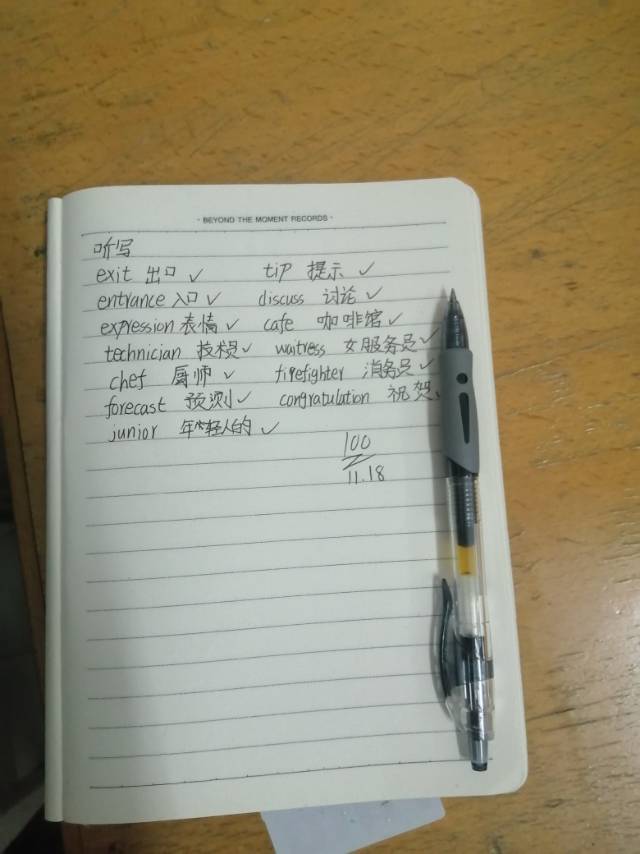 · BEYOND THE MOMENT RECORDS ·
听写
exit 出口 ✓ tip 提示 ✓
entrance 入口 ✓ discuss 讨论 ✓
expression 表情 ✓ cafe 咖啡馆 ✓
technician 技术员 ✓ waitress 女服务员 ✓
chef 厨师 ✓ firefighter 消防员 ✓
forecast 预测 ✓ congratulation 祝贺
junior 年轻人的 ✓
100
11.18